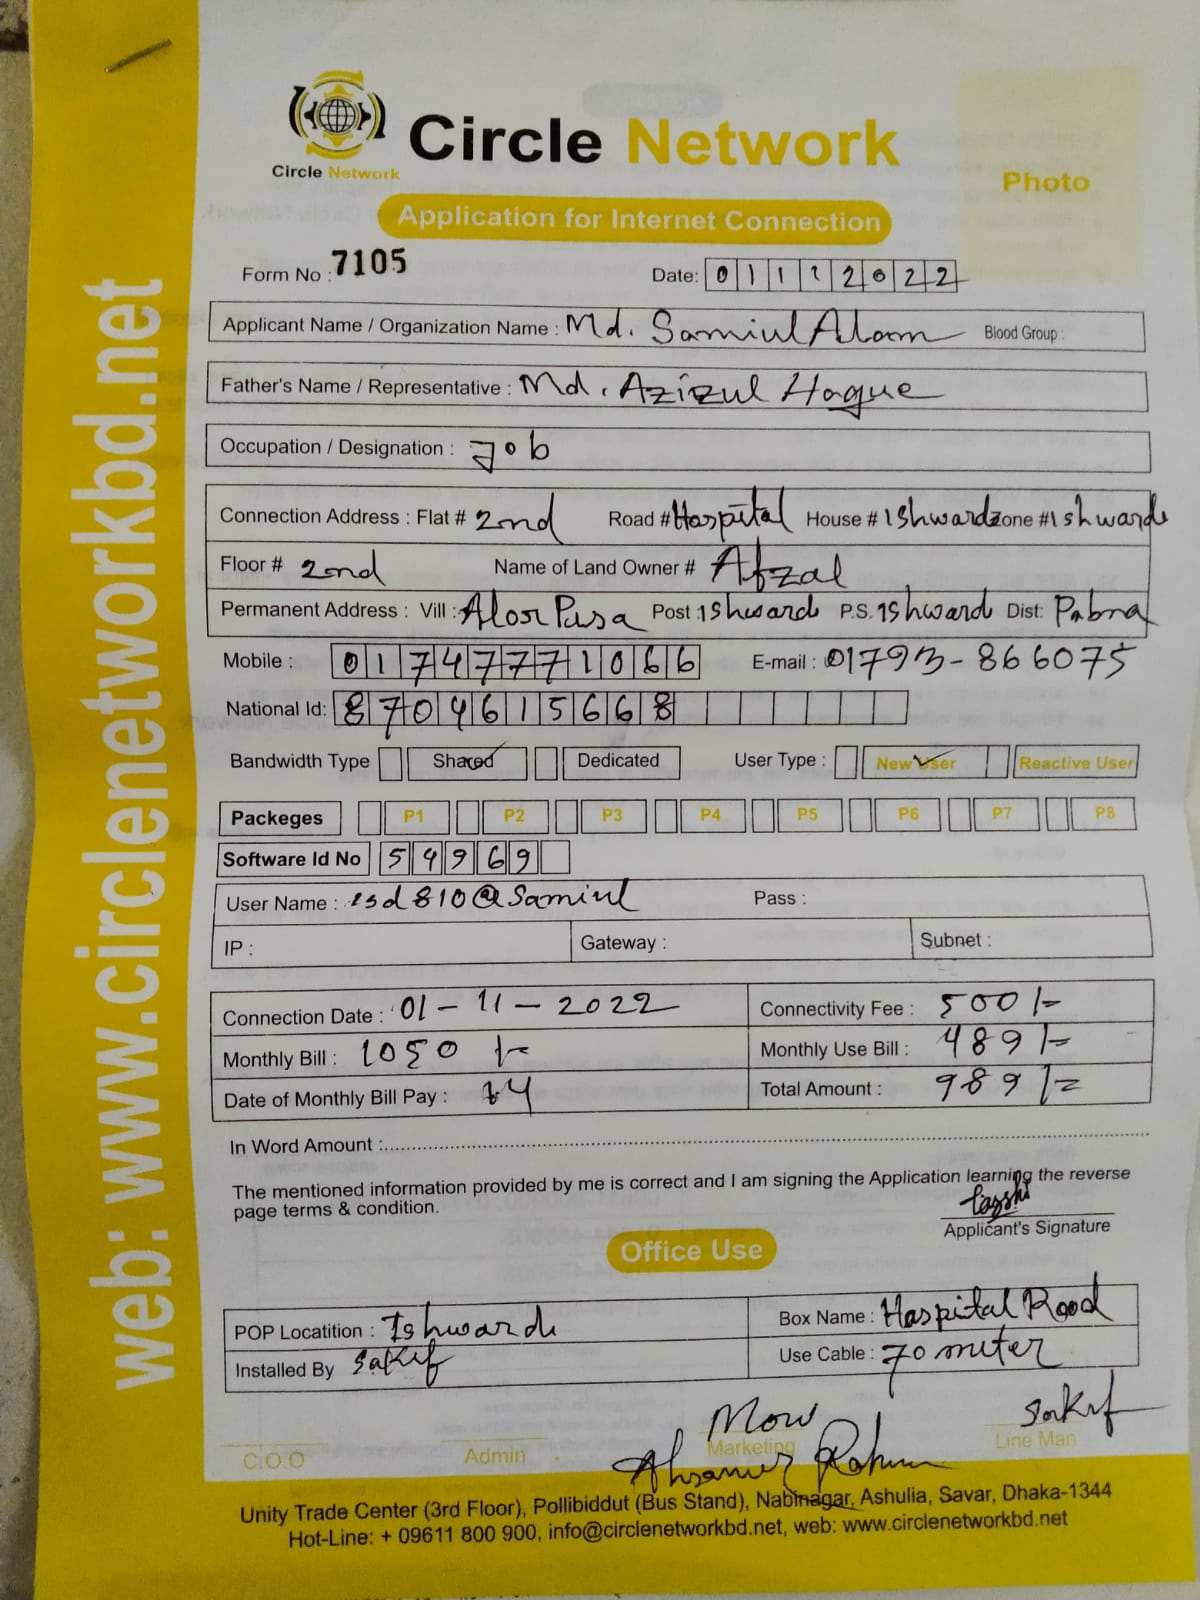 Circle Network
Circle Network
Photo
Application for Internet Connection
Form No : 7105
Date: 0 1 1 2 2 0 2 2
Applicant Name / Organization Name : Md. Samiul Alam Blood Group :
Father's Name / Representative : Md. Azizul Haque
Occupation / Designation : Job
Connection Address : Flat # 2nd Road # Hospital House # Ishwardi Zone # Ishwardi
Floor # 2nd Name of Land Owner # Afzal
Permanent Address : Vill : Post : Ishwardi P.S. Ishwardi Dist: Pabna
Mobile : 0 1 7 4 7 7 7 1 0 6 6
E-mail : 01793-866075
National Id: 8 7 0 4 6 1 5 6 6 8
Bandwidth Type Shared Dedicated User Type : New User Reactive User
Packeges P1 P2 P3 P4 P5 P6 P7 P8
Software Id No 5 4 9 6 9
User Name : isd810@Samiul Pass :
IP : Gateway : Subnet :
Connection Date : 01-11-2022 Connectivity Fee : 500/-
Monthly Bill : 1050 /- Monthly Use Bill : 489/-
Date of Monthly Bill Pay : Total Amount : 989/=
In Word Amount :
The mentioned information provided by me is correct and I am signing the Application learning the reverse
page terms & condition.
Applicant's Signature
Office Use
POP Locatition : Ishwardi Box Name : Hospital Road
Installed By Sakif Use Cable : 70 miter
Sakif
C.O.O Admin Marketing Line Man
Rahman
Unity Trade Center (3rd Floor), Pollibiddut (Bus Stand), Nabinagar, Ashulia, Savar, Dhaka-1344
Hot-Line: + 09611 800 900, info@circlenetworkbd.net, web: www.circlenetworkbd.net
web: www.circlenetworkbd.net